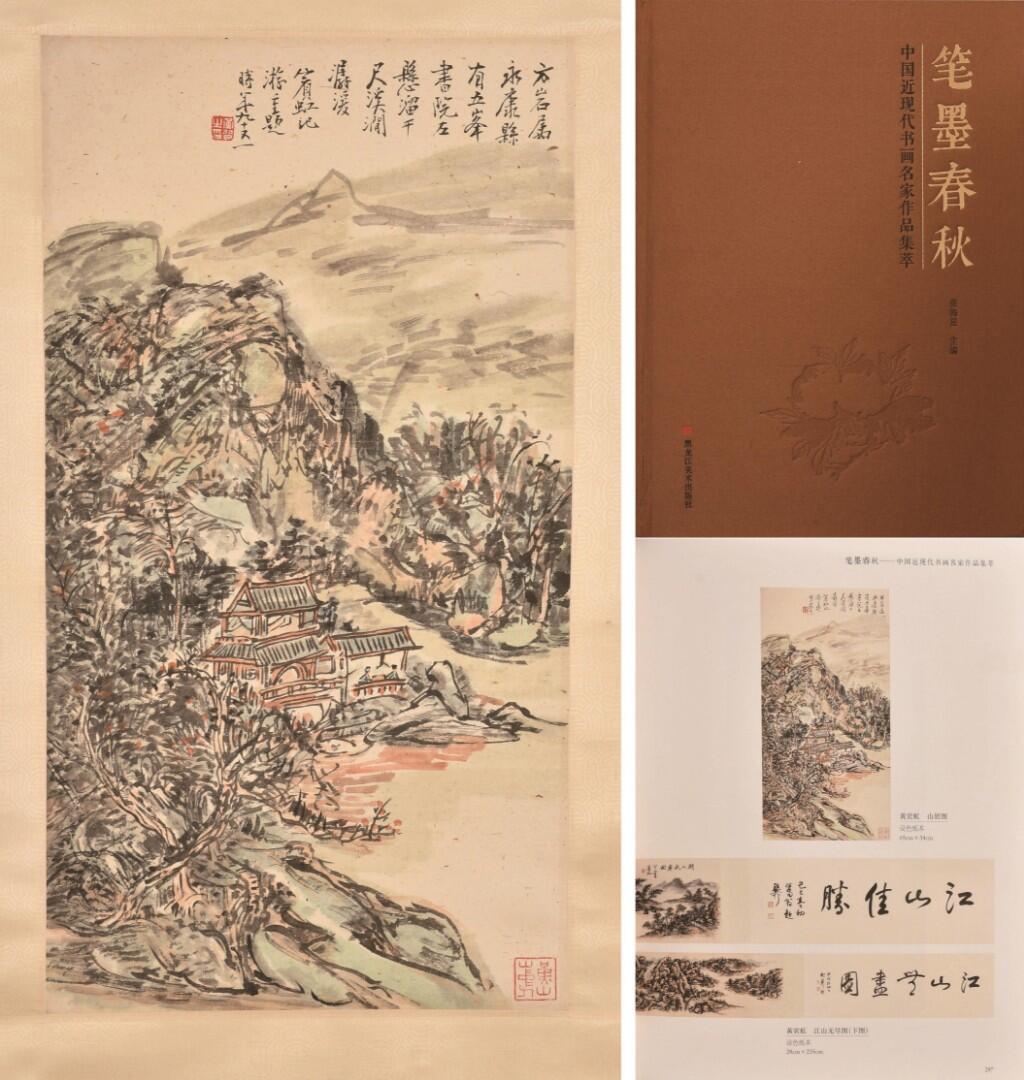 方岩属
永康縣
有五峯
書院左
懸溜千
尺溪澗
潺湲
賓虹記
游重題
時年九十又一
笔墨春秋
中国近现代书画名家作品集萃
主编
黑龙江美术出版社
笔墨春秋——中国近现代书画名家作品集萃
黄宾虹 山居图
设色纸本
江山佳勝
江山無盡圖
黄宾虹 江山无尽图(下图)
设色纸本